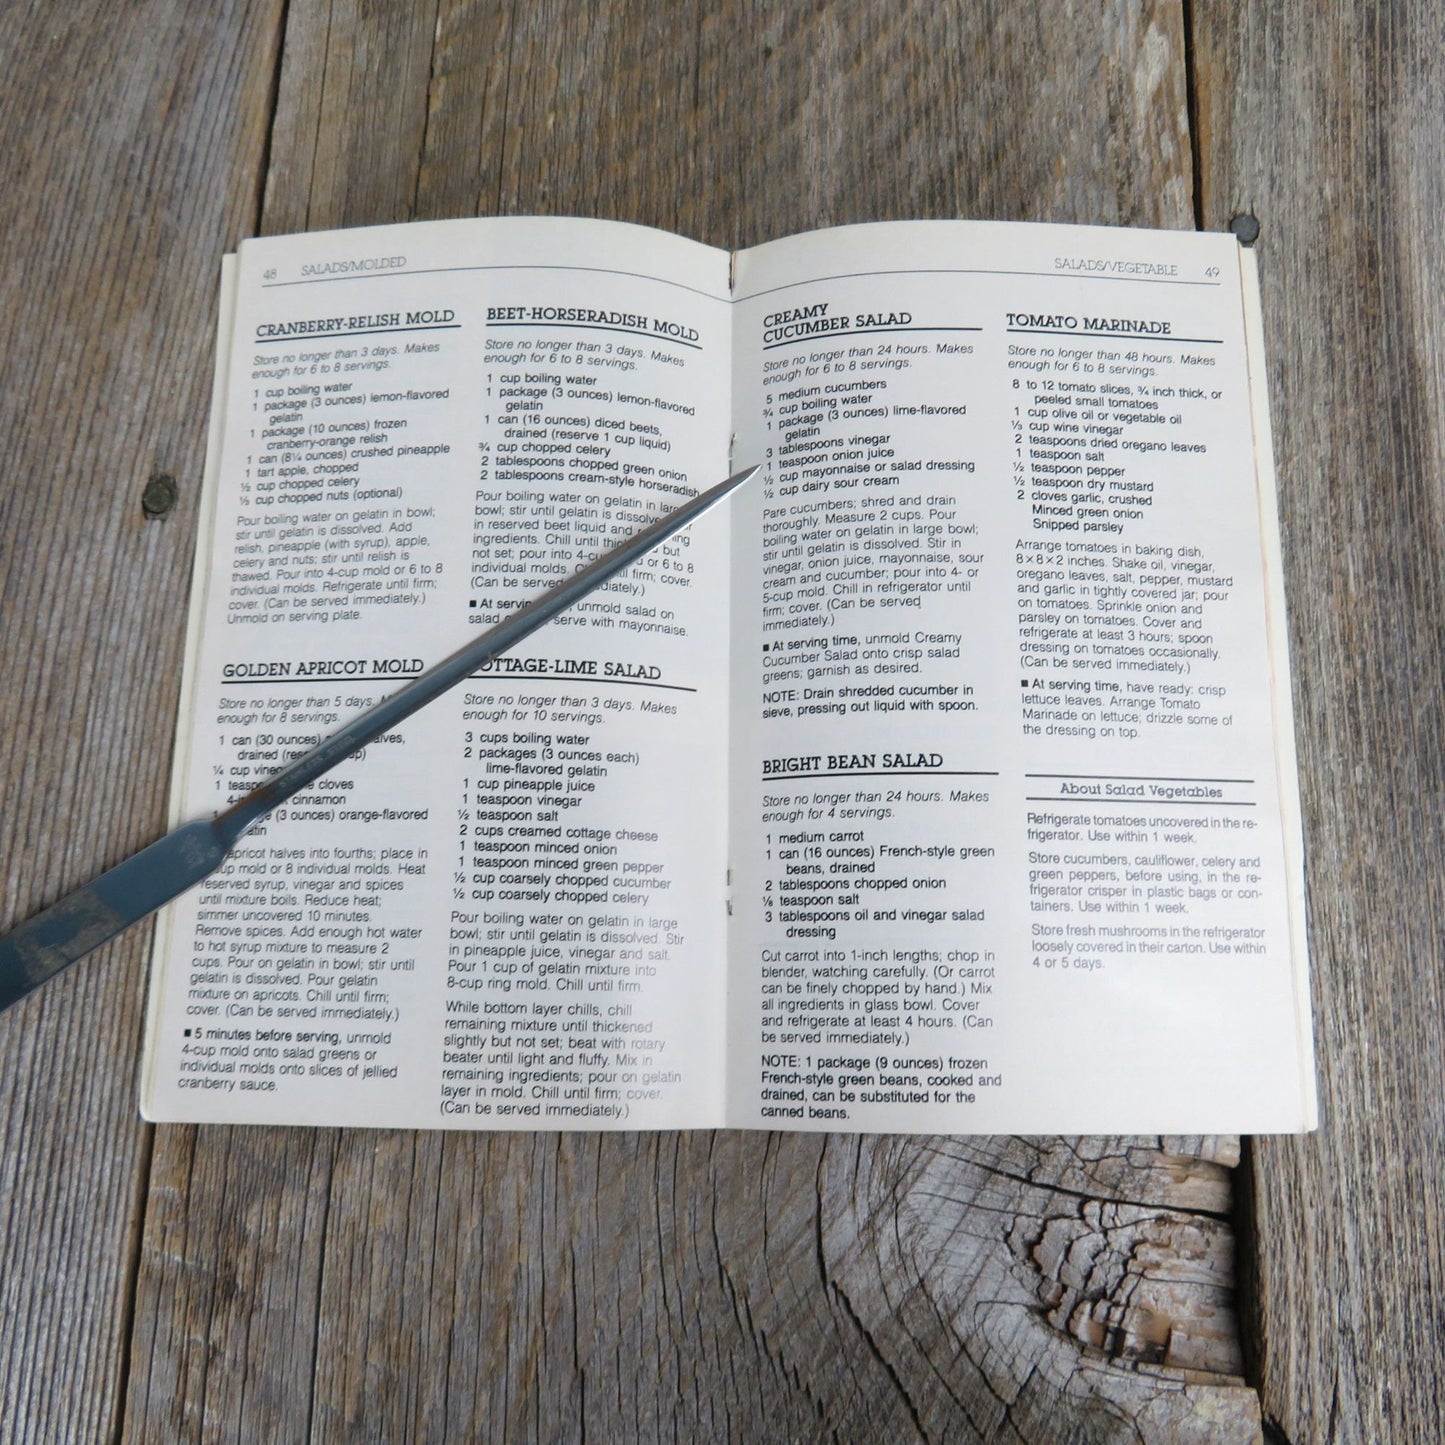 48 SALADS/MOLDED
CRANBERRY-RELISH MOLD
Store no longer than 3 days. Makes
enough for 6 to 8 servings.
1 cup boiling water
1 package (3 ounces) lemon-flavored
gelatin
1 package (10 ounces) frozen
cranberry-orange relish
1 can (8¼ ounces) crushed pineapple
1 tart apple, chopped
½ cup chopped celery
⅓ cup chopped nuts (optional)
Pour boiling water on gelatin in bowl;
stir until gelatin is dissolved. Add
relish, pineapple (with syrup), apple,
celery and nuts; stir until relish is
thawed. Pour into 4-cup mold or 6 to 8
individual molds. Refrigerate until firm;
cover. (Can be served immediately.)
Unmold on serving plate.
GOLDEN APRICOT MOLD
Store no longer than 5 days.
enough for 8 servings.
1 can (30 ounces)
drained
¼ cup
1 cloves
cinnamon
1 (3 ounces) orange-flavored
apricot halves into fourths; place in
mold or 8 individual molds. Heat
reserved syrup, vinegar and spices
until mixture boils. Reduce heat;
simmer uncovered 10 minutes.
Remove spices. Add enough hot water
to hot syrup mixture to measure 2
cups. Pour on gelatin in bowl; stir until
gelatin is dissolved. Pour gelatin
mixture on apricots. Chill until firm;
cover. (Can be served immediately.)
■ 5 minutes before serving, unmold
4-cup mold onto salad greens or
individual molds onto slices of jellied
cranberry sauce.
BEET-HORSERADISH MOLD
Store no longer than 3 days. Makes
enough for 6 to 8 servings.
1 cup boiling water
1 package (3 ounces) lemon-flavored
gelatin
1 can (16 ounces) diced beets,
drained (reserve 1 cup liquid)
¾ cup chopped celery
2 tablespoons chopped green onion
2 tablespoons cream-style horseradish
Pour boiling water on gelatin in large
bowl; stir until gelatin is
in reserved beet liquid and
ingredients. Chill until but
not set; pour into or 6 to 8
individual molds. firm; cover.
(Can be served
■ At unmold salad on
salad serve with mayonnaise.
COTTAGE-LIME SALAD
Store no longer than 3 days. Makes
enough for 10 servings.
3 cups boiling water
2 packages (3 ounces each)
lime-flavored gelatin
1 cup pineapple juice
1 teaspoon vinegar
½ teaspoon salt
2 cups creamed cottage cheese
1 teaspoon minced onion
1 teaspoon minced green pepper
½ cup coarsely chopped cucumber
½ cup coarsely chopped celery
Pour boiling water on gelatin in large
bowl; stir until gelatin is dissolved. Stir
in pineapple juice, vinegar and salt.
Pour 1 cup of gelatin mixture into
8-cup ring mold. Chill until firm.
While bottom layer chills, chill
remaining mixture until thickened
slightly but not set; beat with rotary
beater until light and fluffy. Mix in
remaining ingredients; pour on gelatin
layer in mold. Chill until firm; cover.
(Can be served immediately.)
SALADS/VEGETABLE 49
CREAMY
CUCUMBER SALAD
Store no longer than 24 hours. Makes
enough for 6 to 8 servings.
5 medium cucumbers
¾ cup boiling water
1 package (3 ounces) lime-flavored
gelatin
3 tablespoons vinegar
1 teaspoon onion juice
½ cup mayonnaise or salad dressing
½ cup dairy sour cream
Pare cucumbers; shred and drain
thoroughly. Measure 2 cups. Pour
boiling water on gelatin in large bowl;
stir until gelatin is dissolved. Stir in
vinegar, onion juice, mayonnaise, sour
cream and cucumber; pour into 4- or
5-cup mold. Chill in refrigerator until
firm; cover. (Can be served
immediately.)
■ At serving time, unmold Creamy
Cucumber Salad onto crisp salad
greens; garnish as desired.
NOTE: Drain shredded cucumber in
sieve, pressing out liquid with spoon.
BRIGHT BEAN SALAD
Store no longer than 24 hours. Makes
enough for 4 servings.
1 medium carrot
1 can (16 ounces) French-style green
beans, drained
2 tablespoons chopped onion
⅛ teaspoon salt
3 tablespoons oil and vinegar salad
dressing
Cut carrot into 1-inch lengths; chop in
blender, watching carefully. (Or carrot
can be finely chopped by hand.) Mix
all ingredients in glass bowl. Cover
and refrigerate at least 4 hours. (Can
be served immediately.)
NOTE: 1 package (9 ounces) frozen
French-style green beans, cooked and
drained, can be substituted for the
canned beans.
TOMATO MARINADE
Store no longer than 48 hours. Makes
enough for 6 to 8 servings.
8 to 12 tomato slices, ¾ inch thick, or
peeled small tomatoes
1 cup olive oil or vegetable oil
⅓ cup wine vinegar
2 teaspoons dried oregano leaves
1 teaspoon salt
½ teaspoon pepper
½ teaspoon dry mustard
2 cloves garlic, crushed
Minced green onion
Snipped parsley
Arrange tomatoes in baking dish,
8×8×2 inches. Shake oil, vinegar,
oregano leaves, salt, pepper, mustard
and garlic in tightly covered jar; pour
on tomatoes. Sprinkle onion and
parsley on tomatoes. Cover and
refrigerate at least 3 hours; spoon
dressing on tomatoes occasionally.
(Can be served immediately.)
■ At serving time, have ready: crisp
lettuce leaves. Arrange Tomato
Marinade on lettuce; drizzle some of
the dressing on top.
About Salad Vegetables
Refrigerate tomatoes uncovered in the re-
frigerator. Use within 1 week.
Store cucumbers, cauliflower, celery and
green peppers, before using, in the re-
frigerator crisper in plastic bags or con-
tainers. Use within 1 week.
Store fresh mushrooms in the refrigerator
loosely covered in their carton. Use within
4 or 5 days.